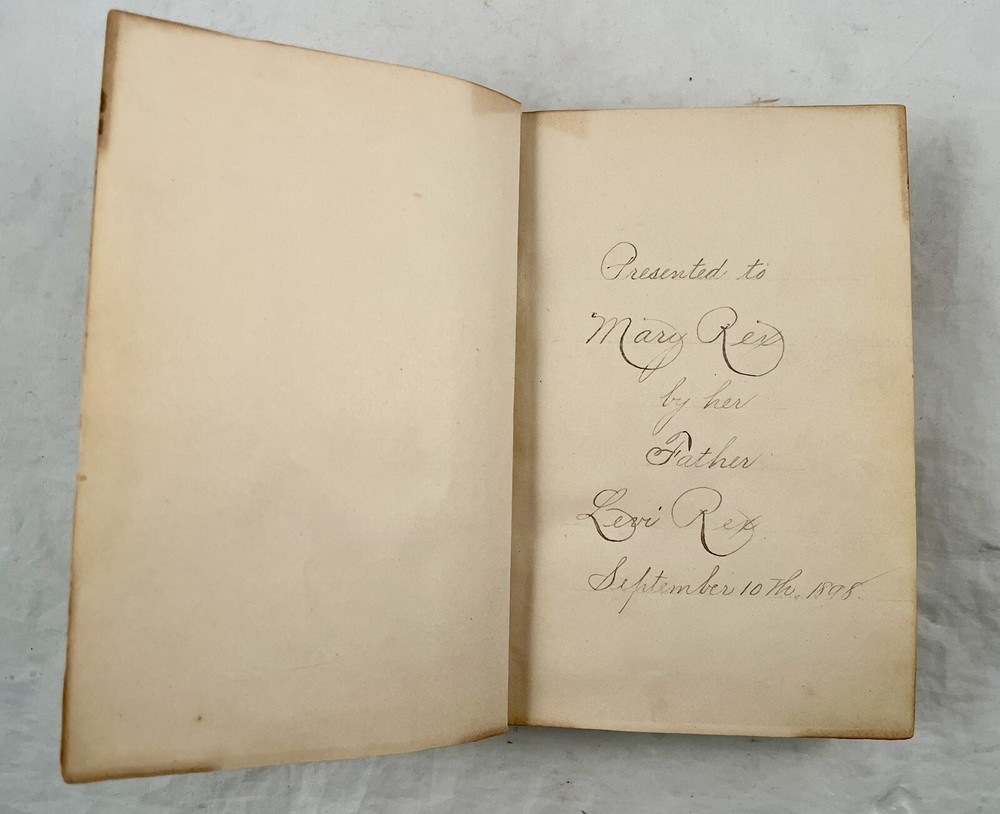 Presented to
Mary Rex
by her
Father
Levi Rex
September 10th. 1898.